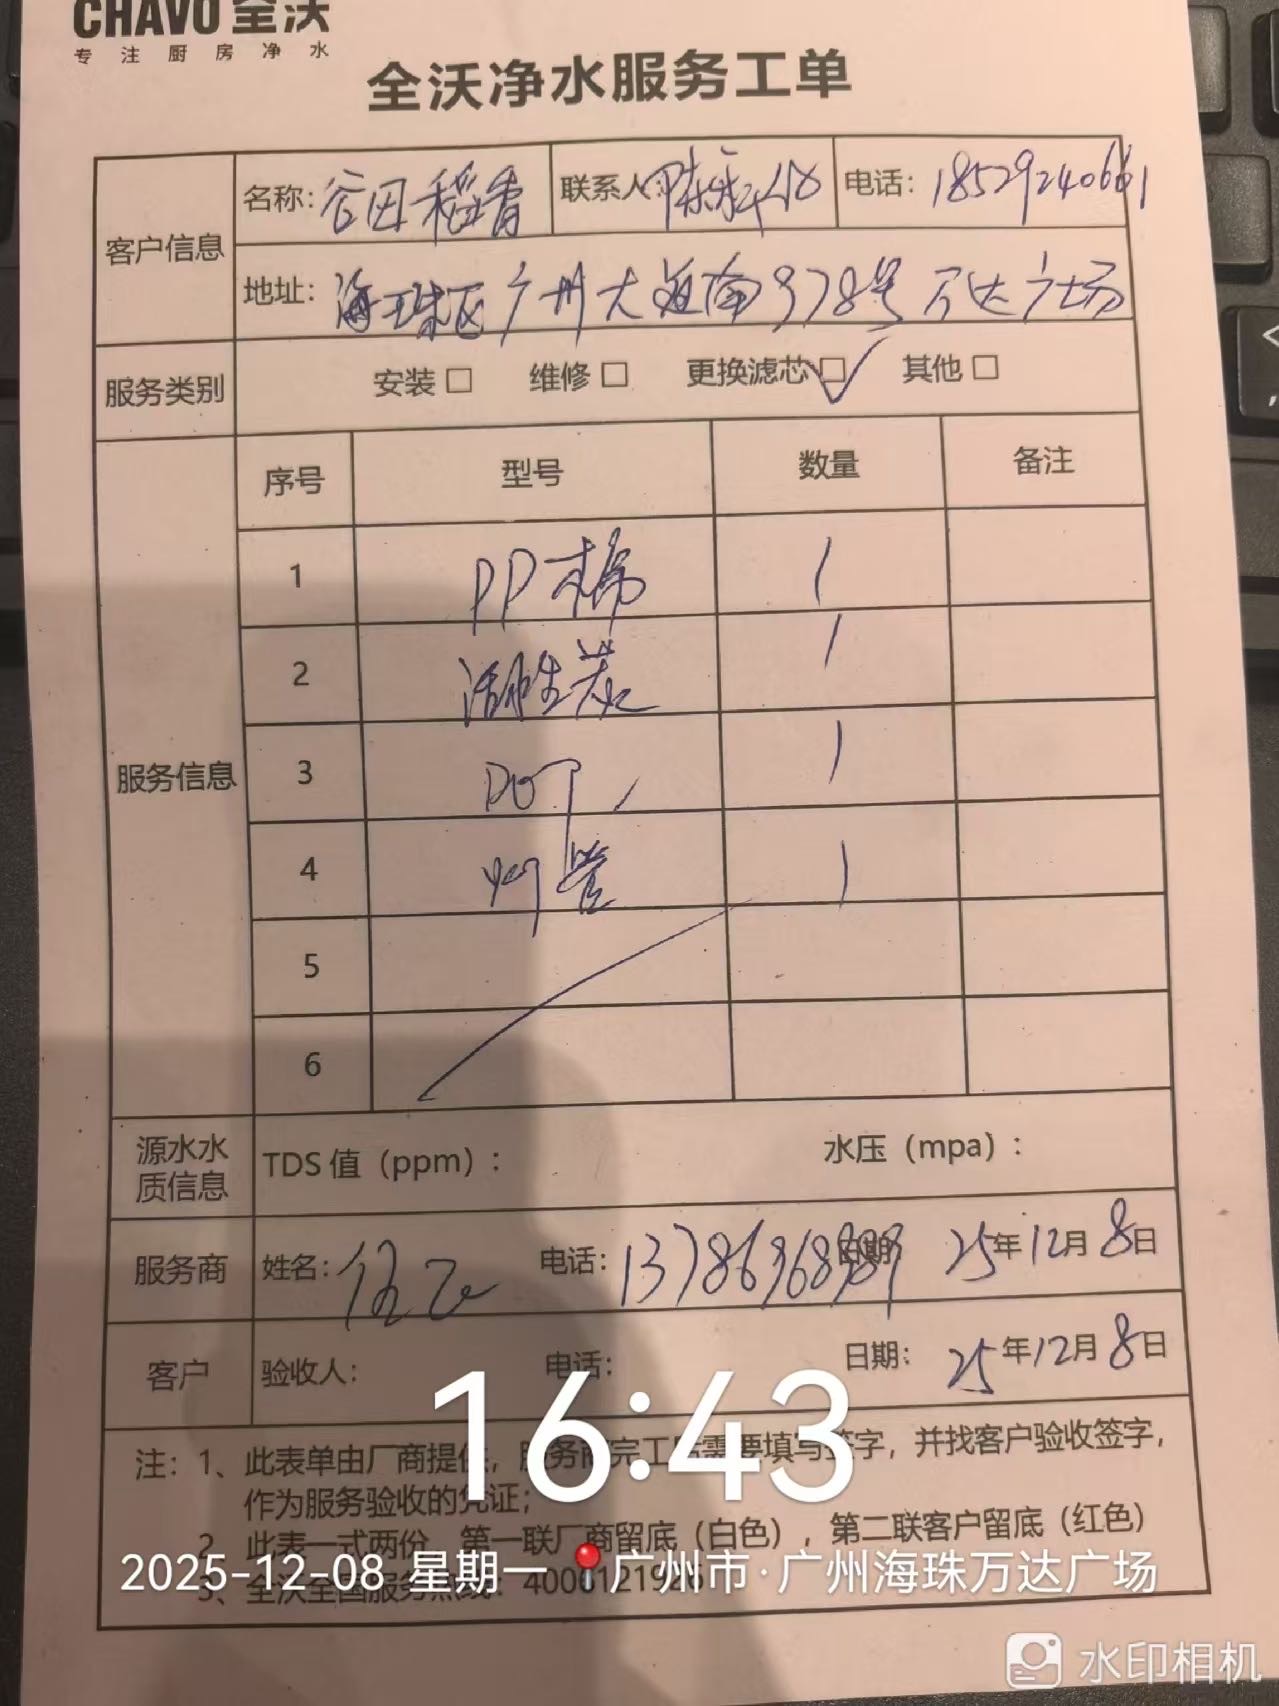 CHAVO 全沃
专注厨房净水
全沃净水服务工单
客户信息
名称: 谷田稻香 联系人: 陈 电话: 18529240661
地址: 海珠区广州大道南378号万达广场
服务类别 安装□ 维修□ 更换滤芯□✓ 其他□
服务信息
序号 型号 数量 备注
1 PP棉 1
2 活性炭 1
3 1
4 管 1
5
6
源水水质信息 TDS值（ppm）: 水压（mpa）:
服务商 姓名: 电话: 日期: 25年12月8日
客户 验收人: 电话: 日期: 25年12月8日
注: 1、此表单由厂商提供，服务商完工后需要填写签字，并找客户验收签字，
作为服务验收的凭证；
2、此表一式两份，第一联厂商留底（白色），第二联客户留底（红色）
3、全沃全国服务热线:
16:43
2025-12-08 星期一 广州市·广州海珠万达广场
水印相机